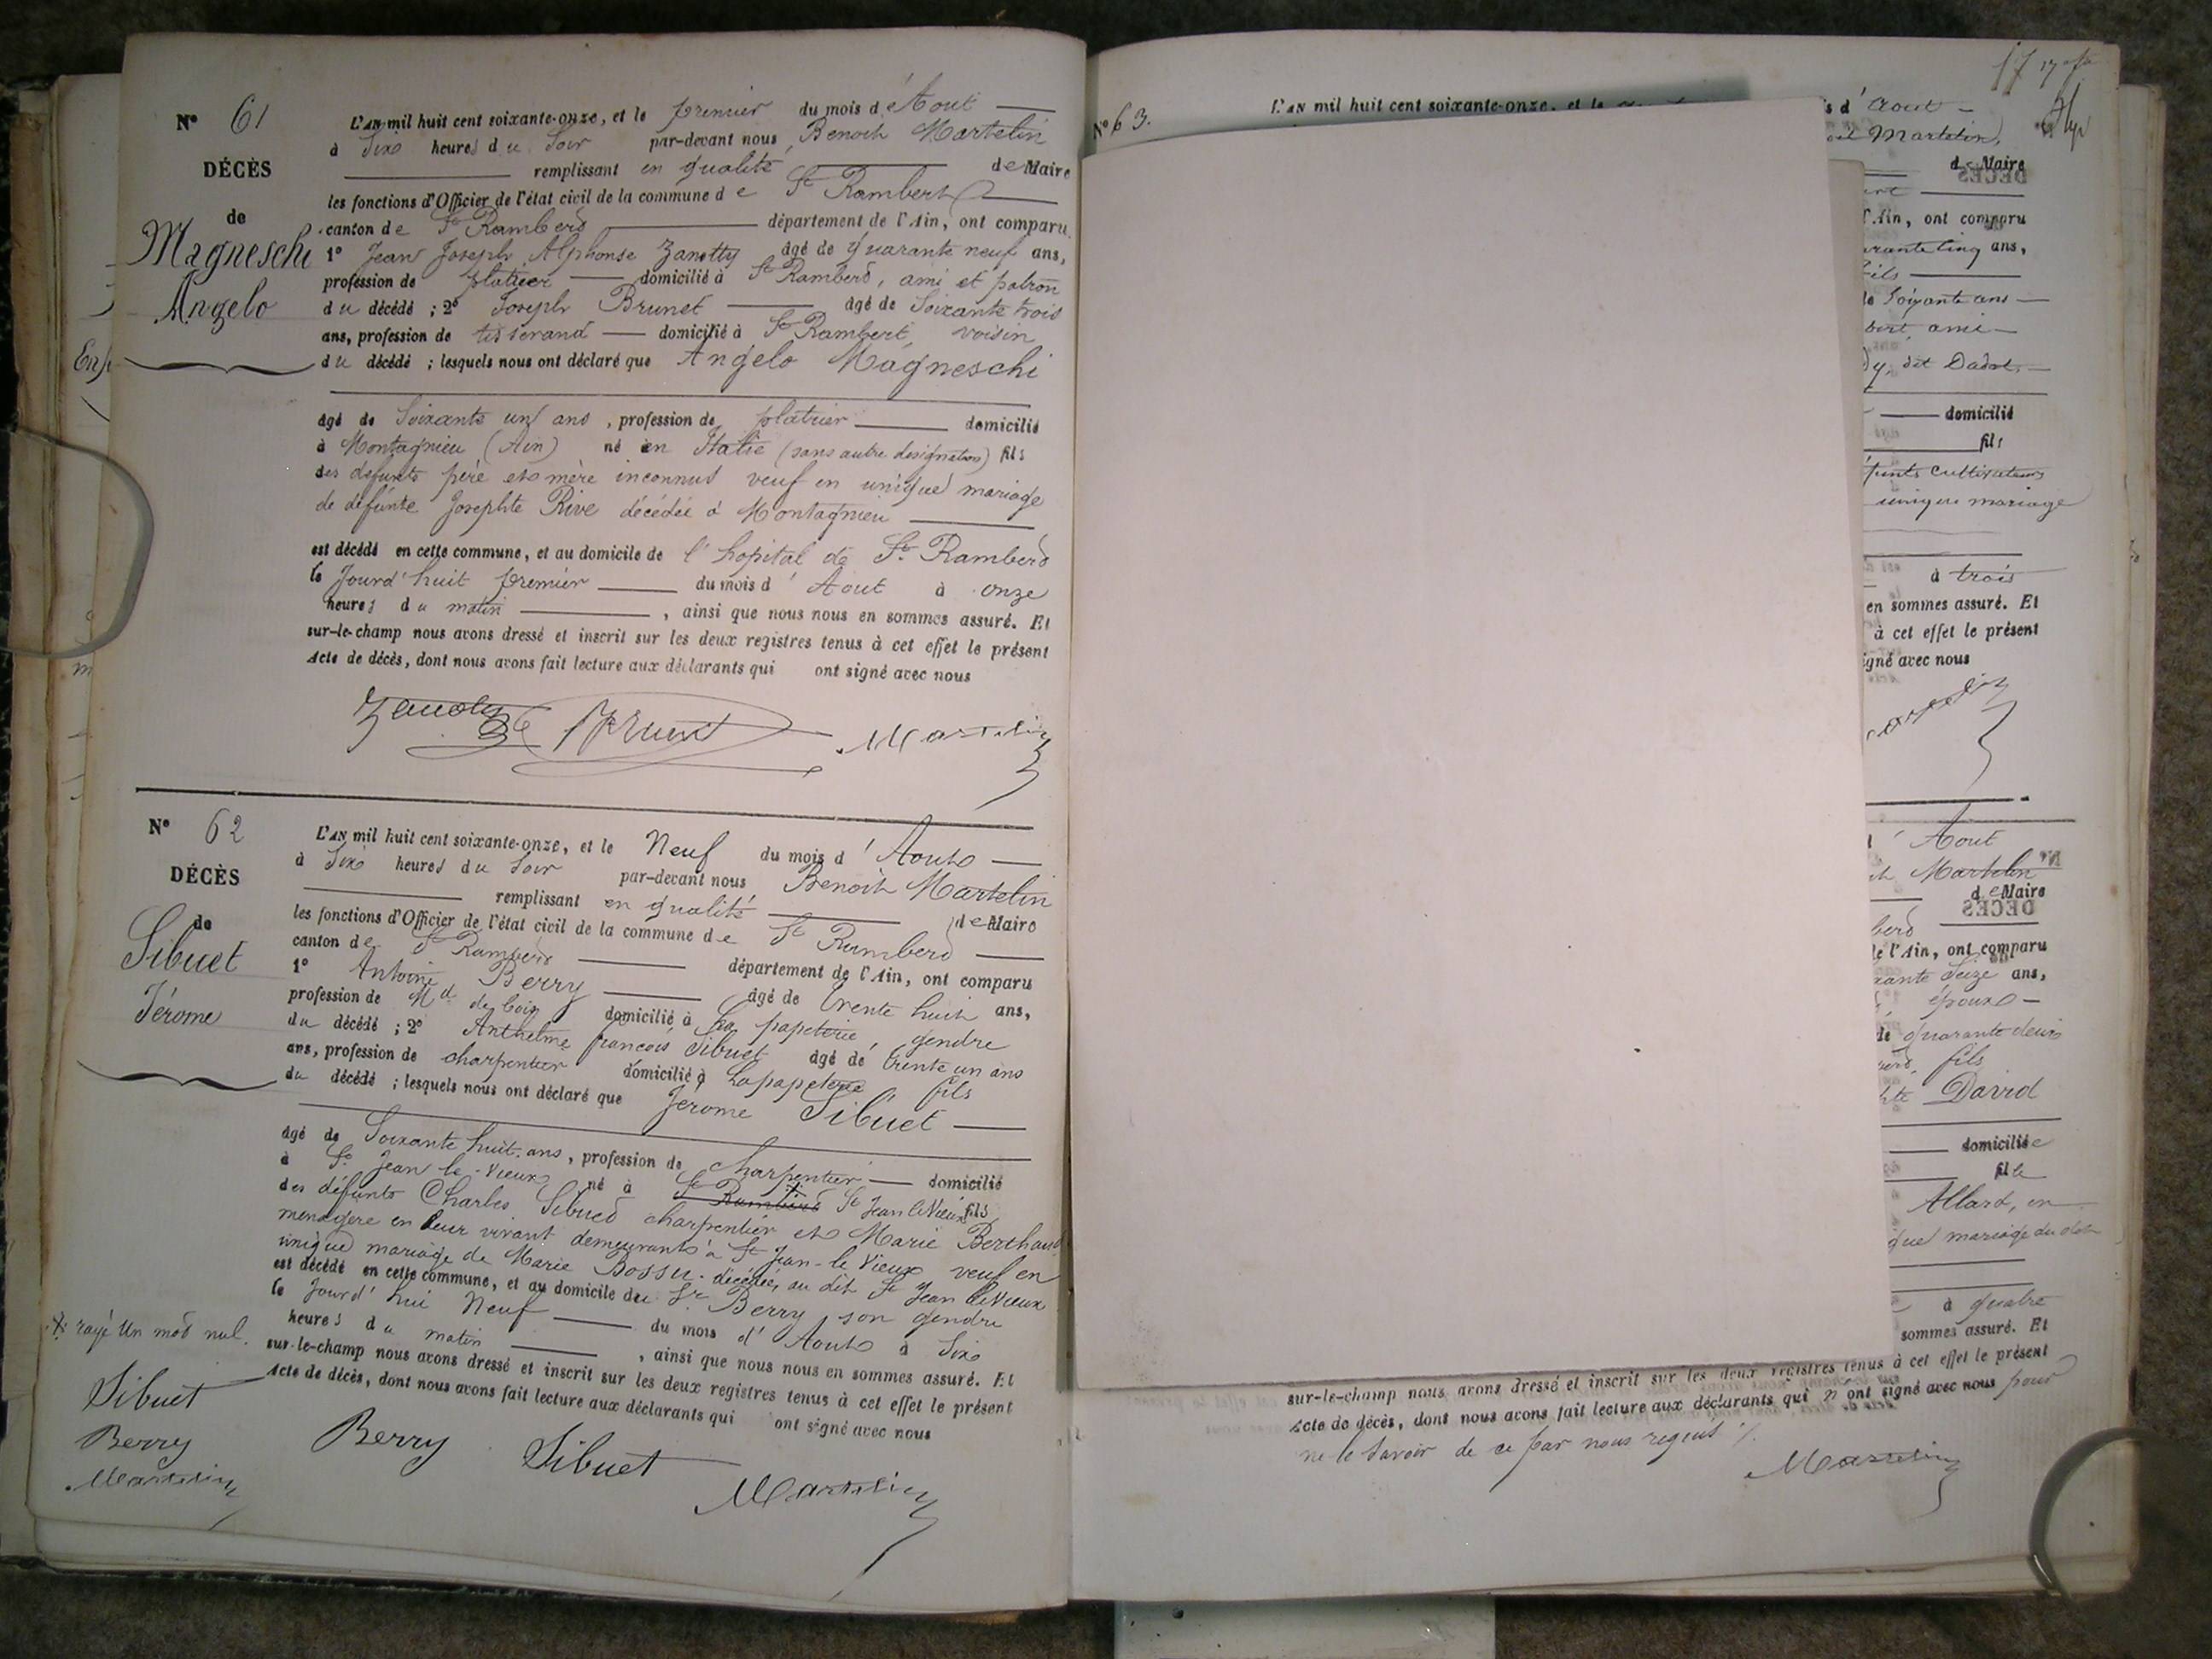 N° 61
DÉCÈS
de
Magneschi
Angelo
L'AN mil huit cent soixante-onze, et le premier du mois d'Aout
à Six heures du Soir par-devant nous Benoit Martelin
remplissant en qualité de Maire
les fonctions d'Officier de l'état civil de la commune de St Rambert
canton de St Rambert département de l'Ain, ont comparu
1° Jean Joseph Alphonse Zanotty âgé de quarante neuf ans,
profession de platrier domicilié à St Rambert, ami et patron
du décédé ; 2° Joseph Brunet âgé de Soixante trois
ans, profession de tisserand domicilié à St Rambert, voisin
du décédé ; lesquels nous ont déclaré que Angelo Magneschi
âgé de Soixante un ans, profession de platrier domicilié
à Montagnieu (Ain) né en Italie (sans autre designation) fils
des defunts père et mère inconnus veuf en unique mariage
de défunte Josephte Rive décédée à Montagnieu
est décédé en cette commune, et au domicile de l'hopital de St Rambert
le Jourd'huit premier du mois d'Aout à onze
heures du matin, ainsi que nous nous en sommes assuré. Et
sur-le-champ nous avons dressé et inscrit sur les deux registres tenus à cet effet le présent
Acte de décès, dont nous avons fait lecture aux déclarants qui ont signé avec nous
Zanotty Brunet Martelin
N° 62
DÉCÈS
de
Sibuet
Jérome
L'AN mil huit cent soixante-onze, et le Neuf du mois d'Aout
à Six heures du Soir par-devant nous Benoit Martelin
remplissant en qualité de Maire
les fonctions d'Officier de l'état civil de la commune de St Rambert
canton de St Rambert département de l'Ain, ont comparu
1° Antoine Berry âgé de trente huit ans,
profession de Md de bois domicilié à La papeterie gendre
du décédé ; 2° Anthelme françois Sibuet âgé de trente un ans
ans, profession de charpentier domicilié à Lapapeterie fils
du décédé ; lesquels nous ont déclaré que Jérome Sibuet
âgé de Soixante huit ans, profession de charpentier domicilié
à St Jean-le-Vieux né à St Rambert St Jean le Vieux fils
des défunts Charles Sibuet charpentier et Marie Berthaud
menagere en leur vivant demeurants à St Jean-le Vieux veuf en
unique mariage de Marie Bossu décédée au dit St Jean le Vieux
est décédé en cette commune, et au domicile du Sr Berry son gendre
le Jourd'hui Neuf du mois d'Aout à Six
heures du matin, ainsi que nous nous en sommes assuré. Et
sur-le-champ nous avons dressé et inscrit sur les deux registres tenus à cet effet le présent
Acte de décès, dont nous avons fait lecture aux déclarants qui ont signé avec nous
rayé Un mot nul.
Sibuet
Berry
Martelin
Berry Sibuet Martelin
17
N° 63.
L'AN mil huit cent soixante-onze, et le
s d'Aout
Martelin,
de Maire
l'Ain, ont comparu
rante cinq ans,
fils
Soixante ans
bert, ami
dy, dit Dadot,
domicilié
fils
funts cultivateurs
unique mariage
à trois
en sommes assuré. Et
à cet effet le présent
igné avec nous
Aout
Martelin
de Maire
bert
e l'Ain, ont comparu
xante Seize ans,
époux
de quarante deux
fils
hte David
domiciliée
fille
Allard, en
que mariage du dit
à quatre
sommes assuré. Et
sur-le-champ nous avons dressé et inscrit sur les deux registres tenus à cet effet le présent
Acte de décès, dont nous avons fait lecture aux déclarants qui n'ont signé avec nous pour
ne le Savoir de ce par nous requis
Martelin